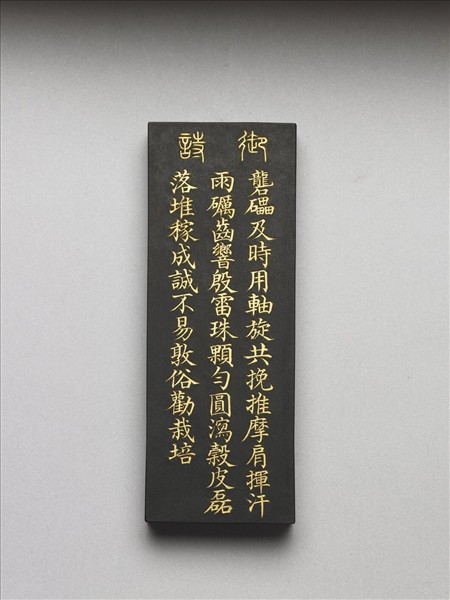 御詩
礱礧及時用軸旋共挽推摩肩揮汗
雨礪齒響殷雷珠顆勻圓瀉穀皮磊
落堆稼成誠不易敦俗勸栽培